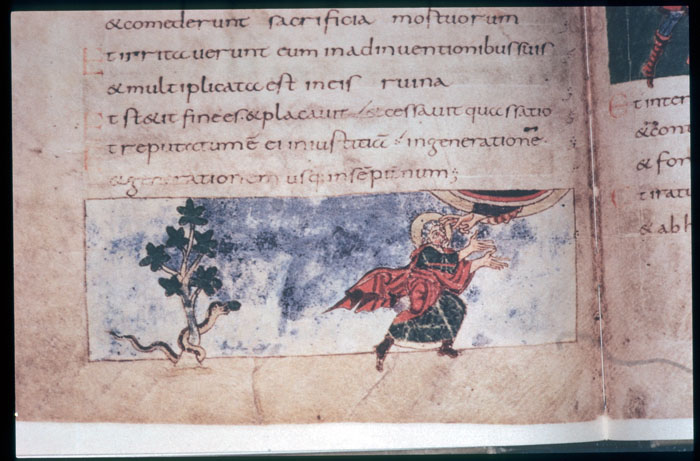 &comederunt sacrificia mortuorum
Et irritauerunt eum inadinuentionibussuis
&multiplicata est ineis ruina
Et st&it finees.&placauit &cessauit quassatio
Et reputatumē ei iniustitiā ingeneratione
&generationem usq; insēpit̄num;
Et inter
&con
& for
tirat
& abh